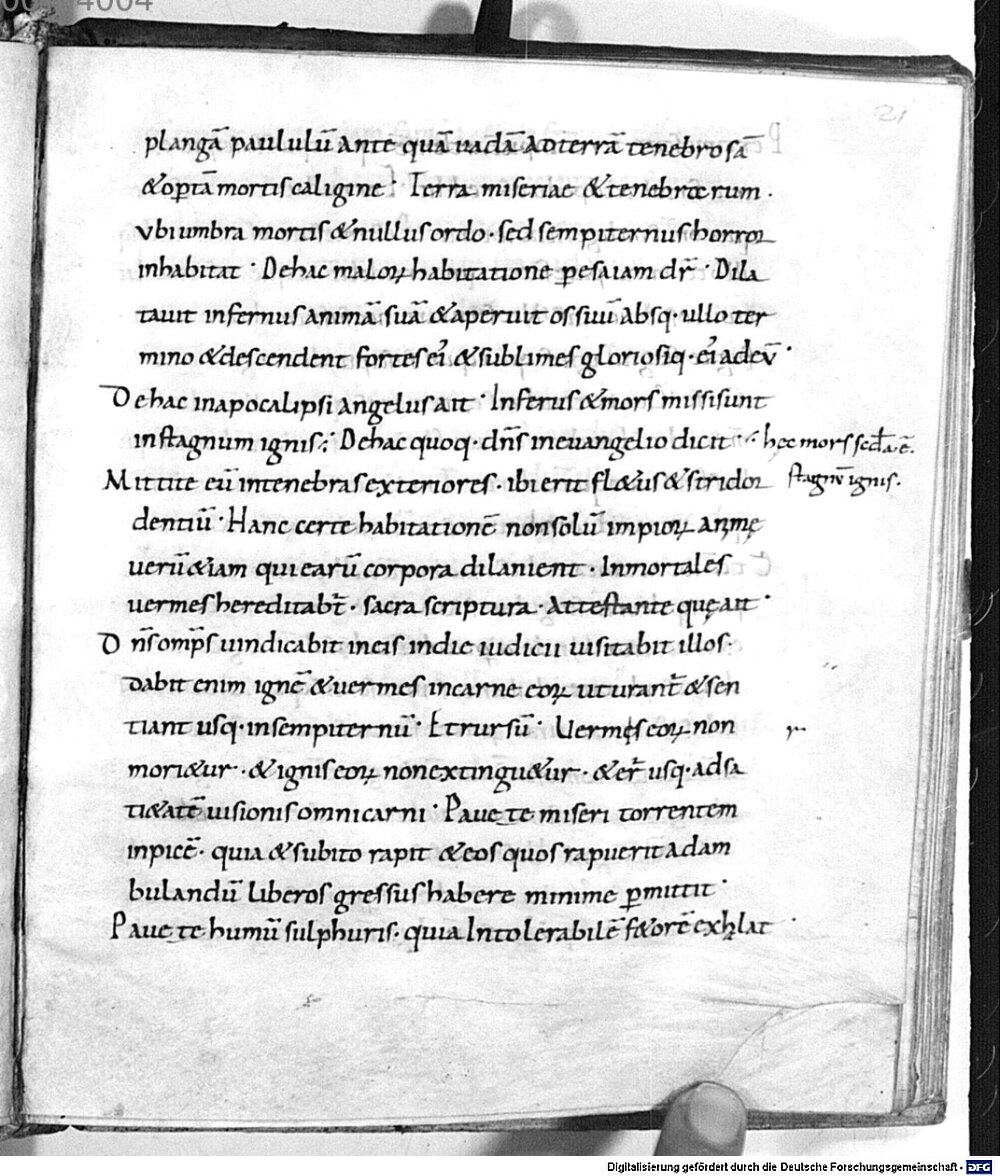 21
plangā paululū ante quā uadā adterrā tenebrosā
&optā mortis caligine · Terra miseriae &tenebrarum ·
vbi umbra mortis &nullus ordo · sed sempiternus horror
inhabitat · Dehac maloꝝ habitatione ꝑ esaiam dr̄ · Dila
tauit infernus animā suā &aperuit os suū absq· ullo ter
mino &descendent fortes ei' &sublimes gloriosiq· ei' adeū ·
Dehac inapocalipsi angelus ait · Infer us &mors missi sunt
instagnum ignis ; Dehac quoq· dn̄s ineuangelio dicit
hec mors sec̄da ē.
stagnū ignis.
Mittite eū intenebras exteriores · ibi erit fl&us &stridor
dentiū · Hanc certe habitationē nonsolū impioꝝ animę
uerū &iam qui earū corpora dilanient · Inmortales
uermes hereditabt̄ · sacra scriptura · Attestante quę ait ·
Dn̄s omp̄s uindicabit ineis indie iudicii uisitabit illos ·
dabit enim ignē &uermes incarne eoꝝ ut urant̄ &sen
tiant usq· insempiternū · Et rursū · Uermes eoꝝ non
mori&ur · &ignis eoꝝ non extingu&ur · &er̄ usq· adsa
ti&atē uisionis omni carni · Pauete miseri torrentem
inpicē · quia &subito rapit &eos quos rapuerit adam
bulandū liberos gressus habere minime ꝑmittit ·
Pauete humū sulphuris · quia Intolerabilē f&orē exhlat ·
Digitalisierung gefördert durch die Deutsche Forschungsgemeinschaft - DFG